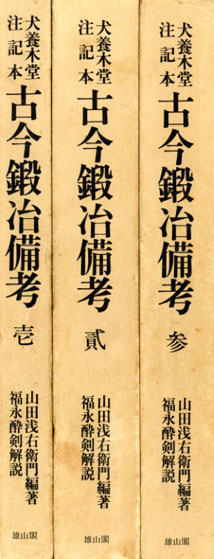 犬養木堂
注記本
古今鍛冶備考
壱
山田浅右衛門編著
福永酔剣解説
雄山閣
犬養木堂
注記本
古今鍛冶備考
貳
山田浅右衛門編著
福永酔剣解説
雄山閣
犬養木堂
注記本
古今鍛冶備考
参
山田浅右衛門編著
福永酔剣解説
雄山閣